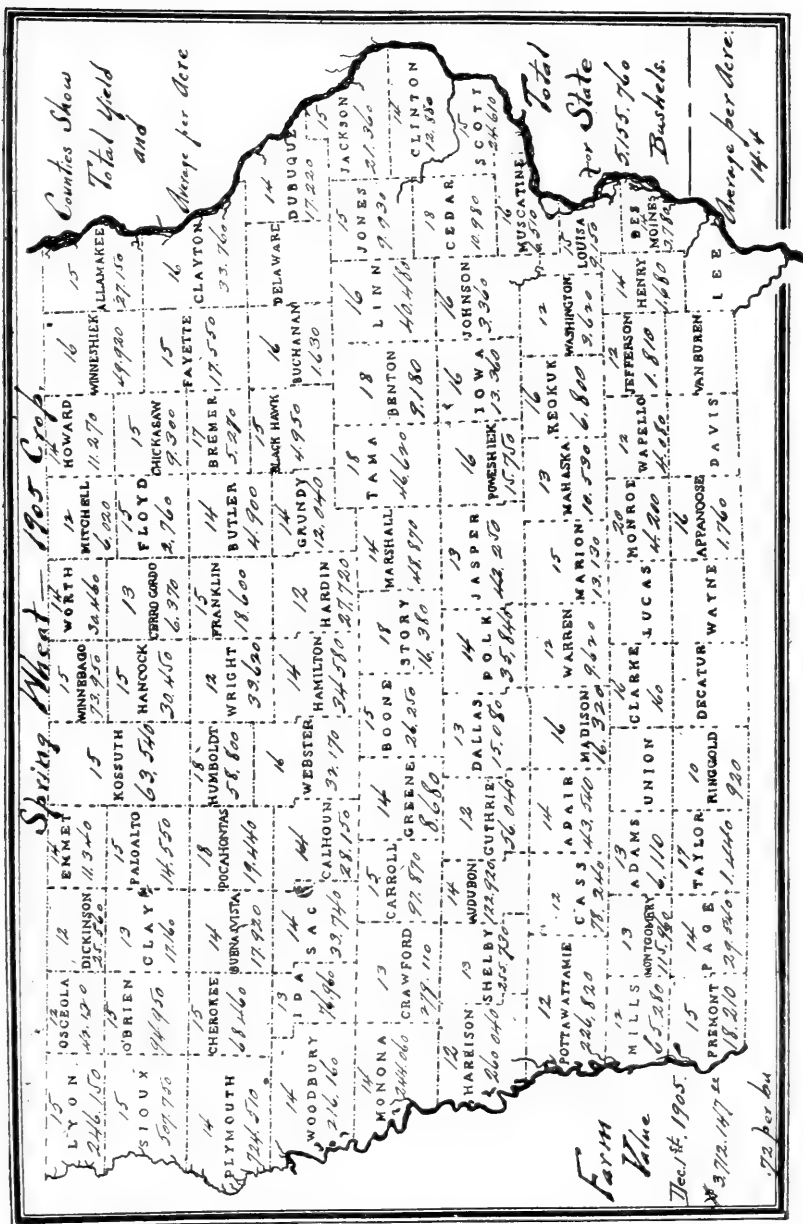 Spring Wheat — 1905 Crop.
Counties Show
Total Yield
and
Average per Acre
15
LYON
246,150
12
OSCEOLA
12
DICKINSON
25,560
14
EMMET
11,340
15
KOSSUTH
63,540
15
WINNEBAGO
73,950
14
WORTH
30,460
12
MITCHELL
6,020
14
HOWARD
11,270
16
WINNESHIEK
49,920
15
ALLAMAKEE
27,150
15
SIOUX
507,750
15
O'BRIEN
94,950
13
CLAY
17,160
15
PALO ALTO
14,550
15
HANCOCK
30,450
13
CERRO GORDO
6,370
15
FLOYD
2,760
15
CHICKASAW
9,300
15
FAYETTE
17,550
16
CLAYTON
33,760
14
PLYMOUTH
724,510
15
CHEROKEE
68,460
14
BUENA VISTA
17,920
18
POCAHONTAS
19,440
18
HUMBOLDT
58,800
12
WRIGHT
33,620
15
FRANKLIN
18,600
14
BUTLER
4,900
17
BREMER
5,270
15
BLACK HAWK
4,950
16
BUCHANAN
1,630
DELAWARE
14
DUBUQUE
17,220
14
WOODBURY
216,160
13
IDA
76,960
14
SAC
33,740
14
CALHOUN
28,150
16
WEBSTER
32,170
14
HAMILTON
34,580
12
HARDIN
27,720
14
GRUNDY
12,040
18
TAMA
46,620
18
BENTON
9,180
16
LINN
40,480
15
JONES
9,930
15
JACKSON
21,360
14
MONONA
244,060
13
CRAWFORD
278,110
15
CARROLL
97,870
14
GREENE
8,680
15
BOONE
26,250
18
STORY
16,380
14
MARSHALL
48,870
14
CLINTON
12,880
12
HARRISON
260,040
13
SHELBY
255,730
14
AUDUBON
122,920
12
GUTHRIE
56,040
13
DALLAS
15,080
14
POLK
35,840
13
JASPER
42,250
16
POWESHIEK
15,750
16
IOWA
13,360
16
JOHNSON
3,360
18
CEDAR
10,980
15
SCOTT
24,610
16
MUSCATINE
6,510
12
POTTAWATTAMIE
226,820
12
CASS
78,240
14
ADAIR
43,540
16
MADISON
16,320
12
WARREN
9,620
15
MARION
13,130
13
MAHASKA
10,590
16
KEOKUK
6,800
12
WASHINGTON
3,620
15
LOUISA
9,150
12
MILLS
65,280
13
MONTGOMERY
13
ADAMS
6,110
UNION
16
CLARKE
160
LUCAS
20
MONROE
4,200
12
WAPELLO
4,080
12
JEFFERSON
1,810
14
HENRY
1,680
DES
MOINES
3,780
15
FREMONT
18,210
14
PAGE
29,540
17
TAYLOR
1,440
10
RINGGOLD
920
DECATUR
WAYNE
16
APPANOOSE
1,760
DAVIS
VAN BUREN
LEE
Total
for State
5,155,760
Bushels.
Average per Acre:
14.4
Farm
Value
Dec. 1st, 1905.
$3,712,147.20
.72 per bu